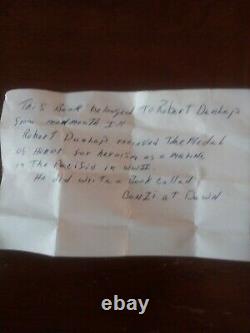 This Book belonged To Robert Dunlap
from monmouth Ill
Robert Dunlap received The Medal
of Honor for heroism as a marine
in The Pacific in WWII
He did write a Book called
BanZi at Dawn
ebay